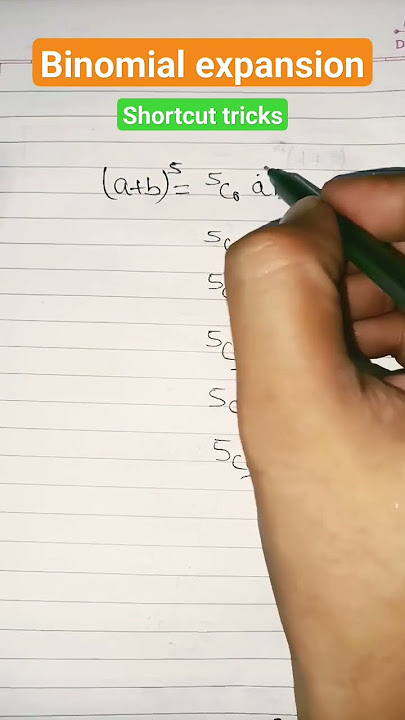 Binomial expansion
Shortcut tricks
(a+b)⁵ = ⁵C₀ a
⁵C
⁵
⁵C
⁵C
⁵C